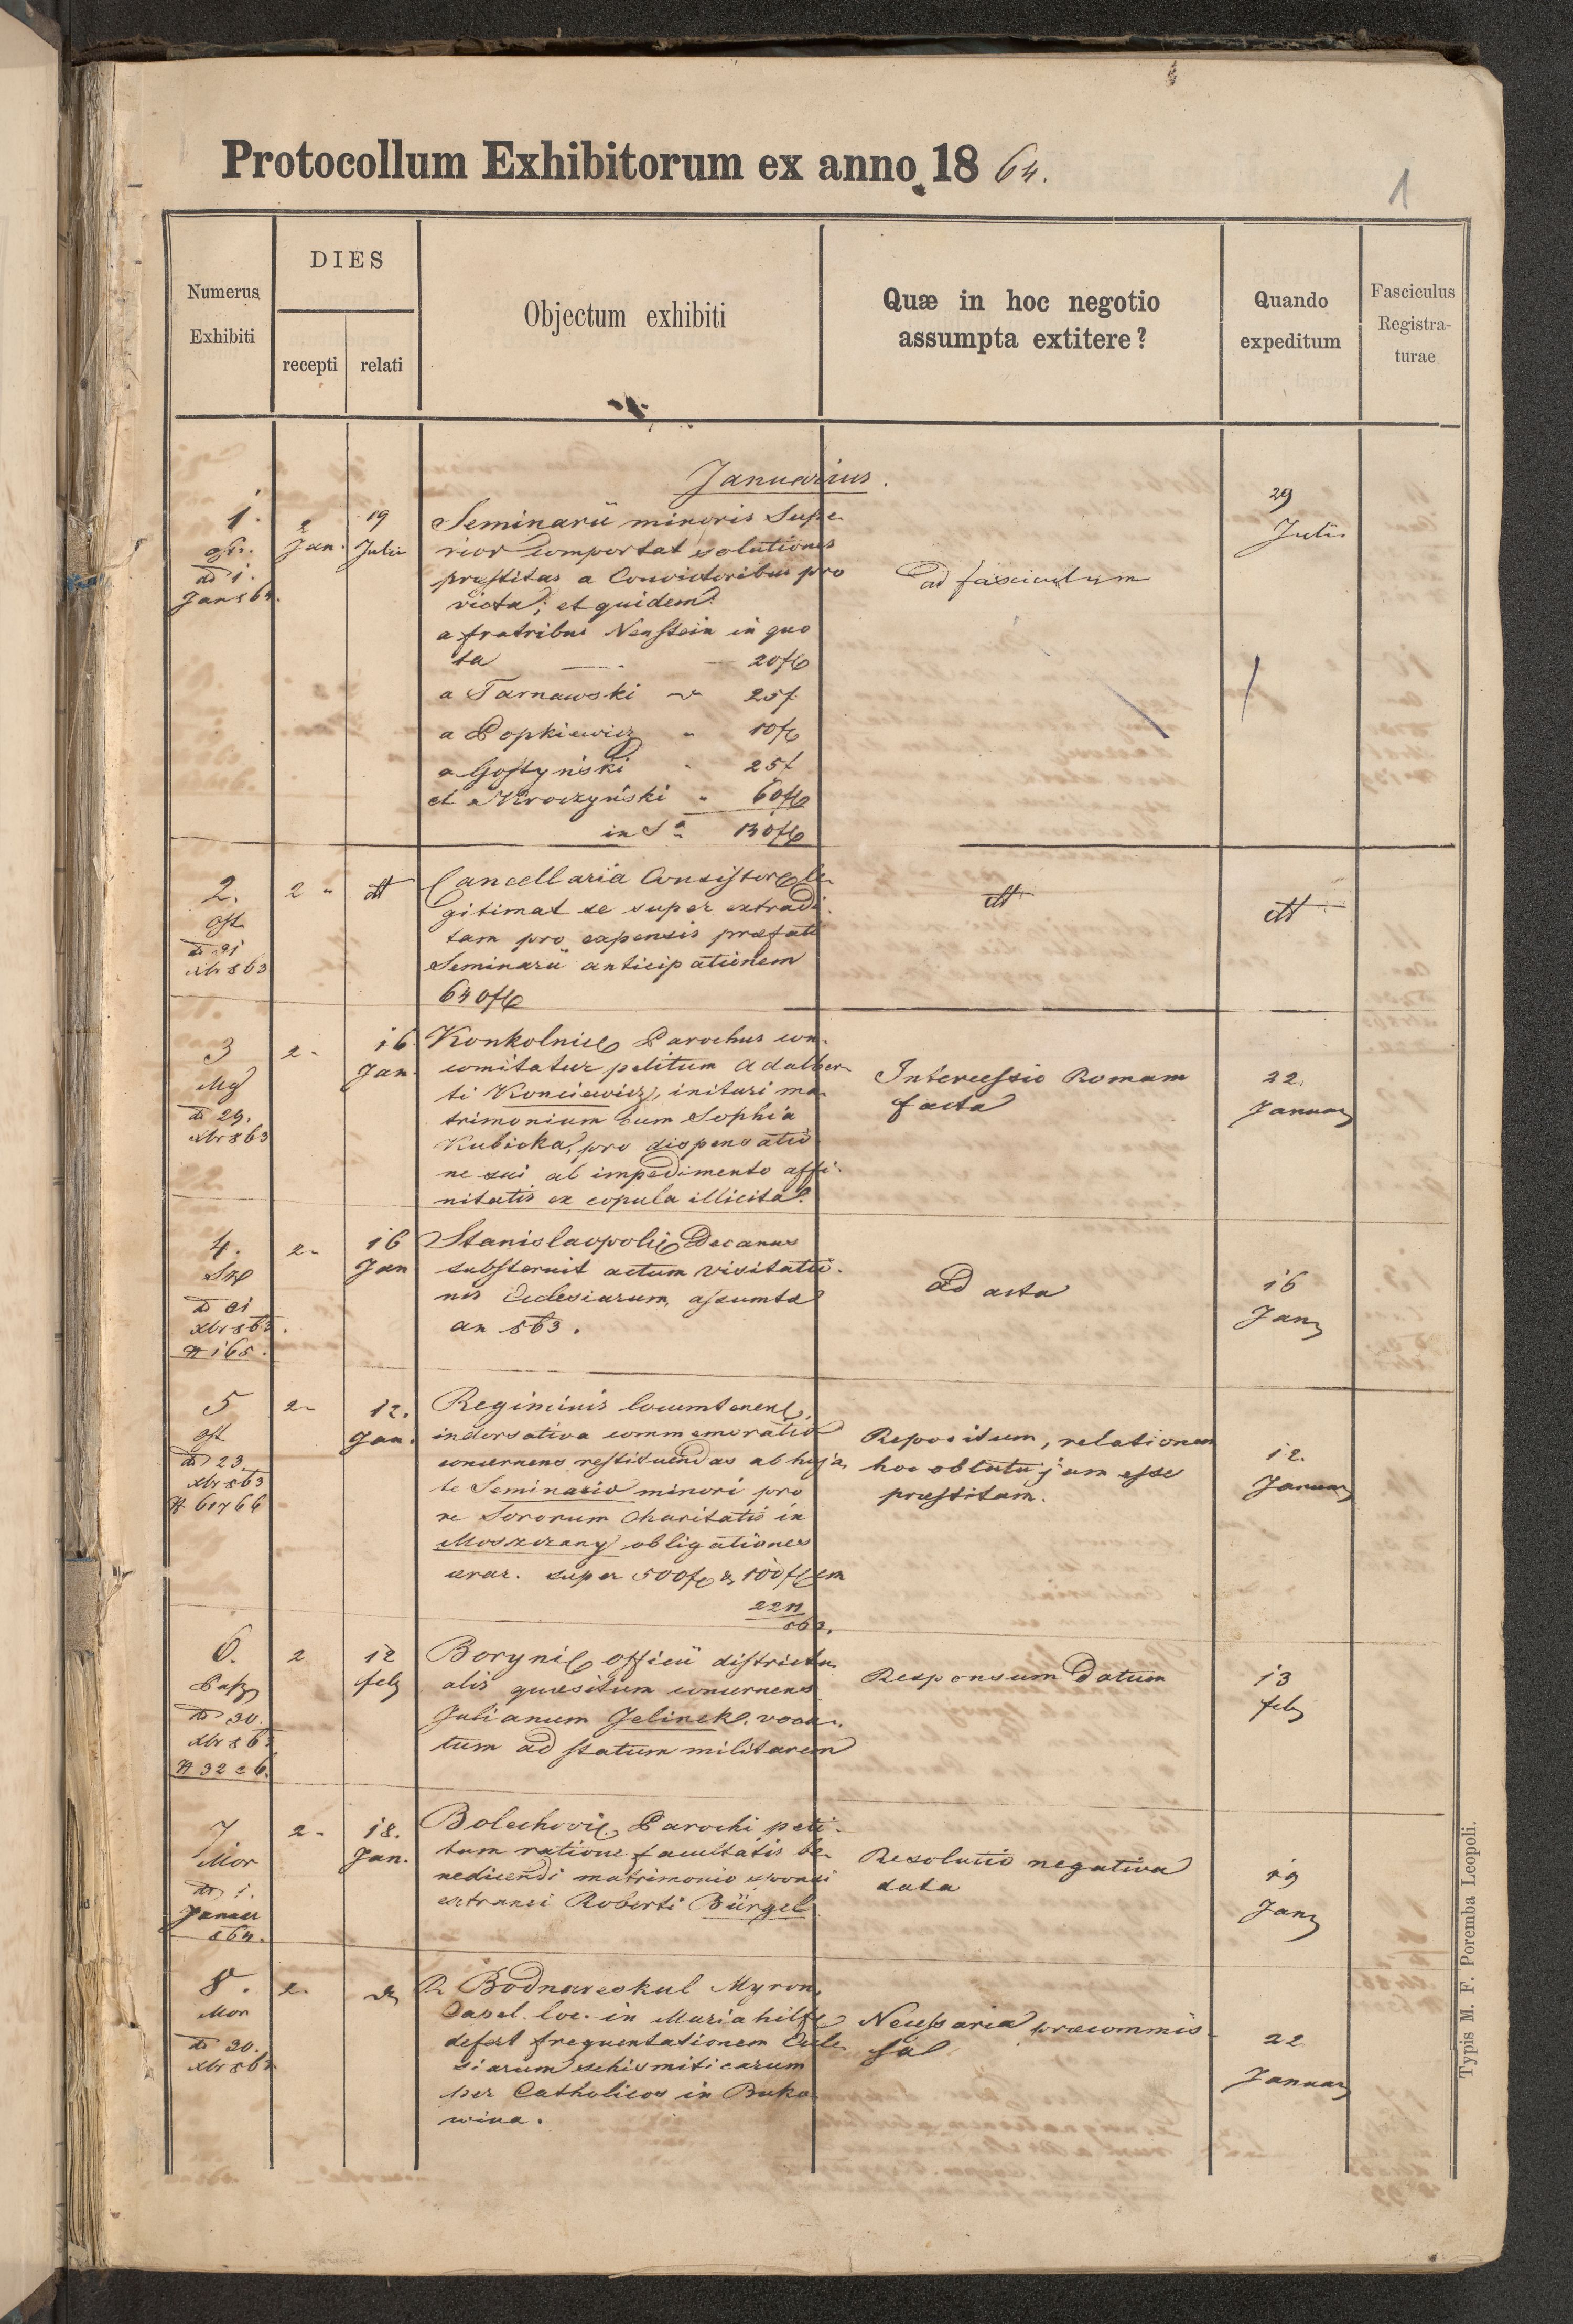 Protocollum Exhibitorum ex anno 18 64.
1
Numerus Exhibiti
DIES
recepti
relati
Objectum exhibiti
Quæ in hoc negotio assumpta extitere?
Quando expeditum
Fasciculus Registra-turae
Januarius.
1.
dd 1.
Jan 864.
2
Jan.
19
Julii
Seminarii minoris Supe-
rior comportat solutiones
præstitas a Convictoribus pro
victu; et quidem
a fratribus Neustein in quo
ta 20 fl
a Tarnawski 25 f
a Popkiewicz " 10 fl
a Gostyński " 25 f
et a Kroczyński " 60 fl
in Sa 140 fl
ad fasciculum
29
Julii
2.
dd 31
xbr 863
2 "
dtt
Cancellaria Consistor. le-
gitimat se super extradi-
tam pro expensis præfati
Seminarii anticipationem
640 fl
dtt
dtt
3
dd 29.
xbr 863
2 "
16
Jan.
Konkolnic Parochus con-
comitatur petitum Adalber-
ti Konciewicz, inituri ma-
trimonium cum Sophia
Kubicka, pro dispensatio
ne sui ab impedimento affi-
nitatis ex copula illicita.
Intercessio Romam
facta
22.
Januar
4.
dd 31
xbr 863.
N 165.
2 "
16
Jan
Stanislaopoli Decanus
substernit actum visitatio-
nis Ecclesiarum, assumta
an 863.
ad acta
16
Jan
5
dd 23.
xbr 863
N 61766
2 "
12.
Jan.
Regiminis locumtenent.
indorsativa commemoratio
concernens restituendas ab huja
te Seminario minori pro
re Sororum Charitatis in
Moszczany obligationes
aerar. super 500 fl & 100 fl em
22 11
863.
Repositum, relationem
hoc obtutu jam esse
præstitam.
12.
Januar
6.
dd 30.
xbr 863
2
12
feb
Borynic officii districtu
alis quæsitum concernens
Julianum Jelinek, voca-
tum ad statum militarem
Responsum datum
13
feb
7
Mor
dd 1.
Januar
864.
2 "
18.
Jan.
Bolechovic. Parochi peti-
tum ratione facultatis be-
nedicendi matrimonio sponsi
extranei Roberti Bürgel
Resolutio negativa
data
19
Jan
8.
Mor
dd 30.
xbr 863
2.
Bodnareskul Myron
loc. in Mariahilf
defert frequentationem Eccle
siarum schismiticarum
per Catholicos in Buko
wina.
Necessaria præcommis-
sa
22
Januar
Typis M. F. Poremba Leopoli.